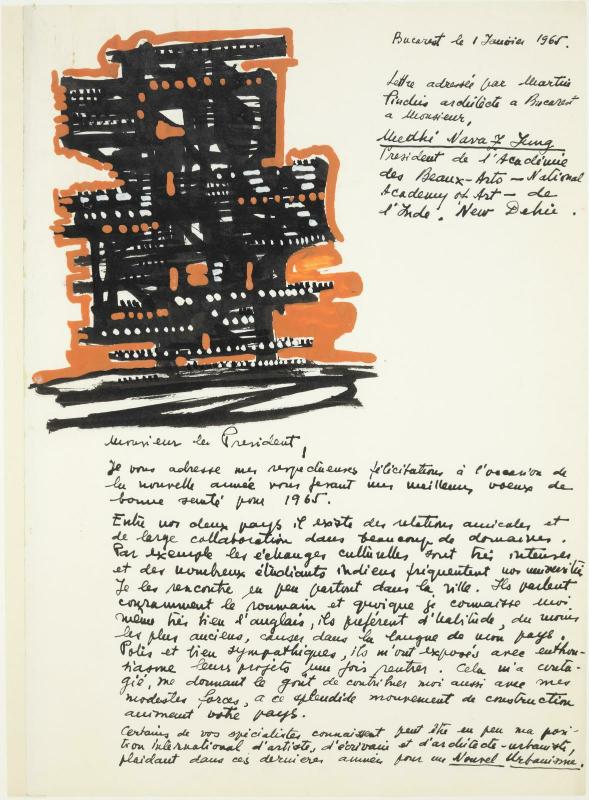 Bucarest le 1 Janvier 1965.
Lettre adressée par Martin
Pinchis architecte a Bucarest
a Monsieur,
Medhi Nava Z Jung
President de l'Académie
des Beaux-Arts — National
Academy of Art — de
l'Inde. New Dehli.
Monsieur le President!
Je vous adresse mes respectueuses félicitations à l'occasion de
la nouvelle année vous faisant mes meilleurs voeux de
bonne santé pour 1965.
Entre nos deux pays il existe des relations amicales et
de large collaboration dans beaucoup de domaines.
Par exemple les échanges culturelles sont très intenses
et des nombreux étudiants indiens fréquentent nos université
Je les rencontre un peu partout dans la ville. Ils parlent
couramment le roumain et quoique je connaisse moi
même très bien l'anglais, ils préfèrent d'habitude, du moins
les plus anciens, causer dans la langue de mon pays.
Polis et bien sympathiques, ils m'ont exposés avec enthou-
siasme leurs projets une fois rentrer. Cela m'a conta-
gié, me donnant le goût de contribuer moi aussi avec mes
modestes forces, a ce splendide mouvement de construction
animent votre pays.
Certains de vos spécialistes connaissent peut être un peu ma posi-
tion International d'artiste, d'écrivain et d'architecte-urbaniste,
plaidant dans ces dernieres années pour un Nouvel Urbanisme.